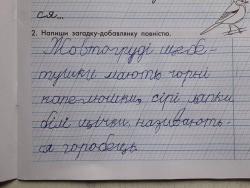 ся...
2. Напиши загадку-добавлянку повністю.
Жовтогруді щебе-
тушки мають чорні
капелюшки, сірі лапки
білі щічки, називають-
ся горобець